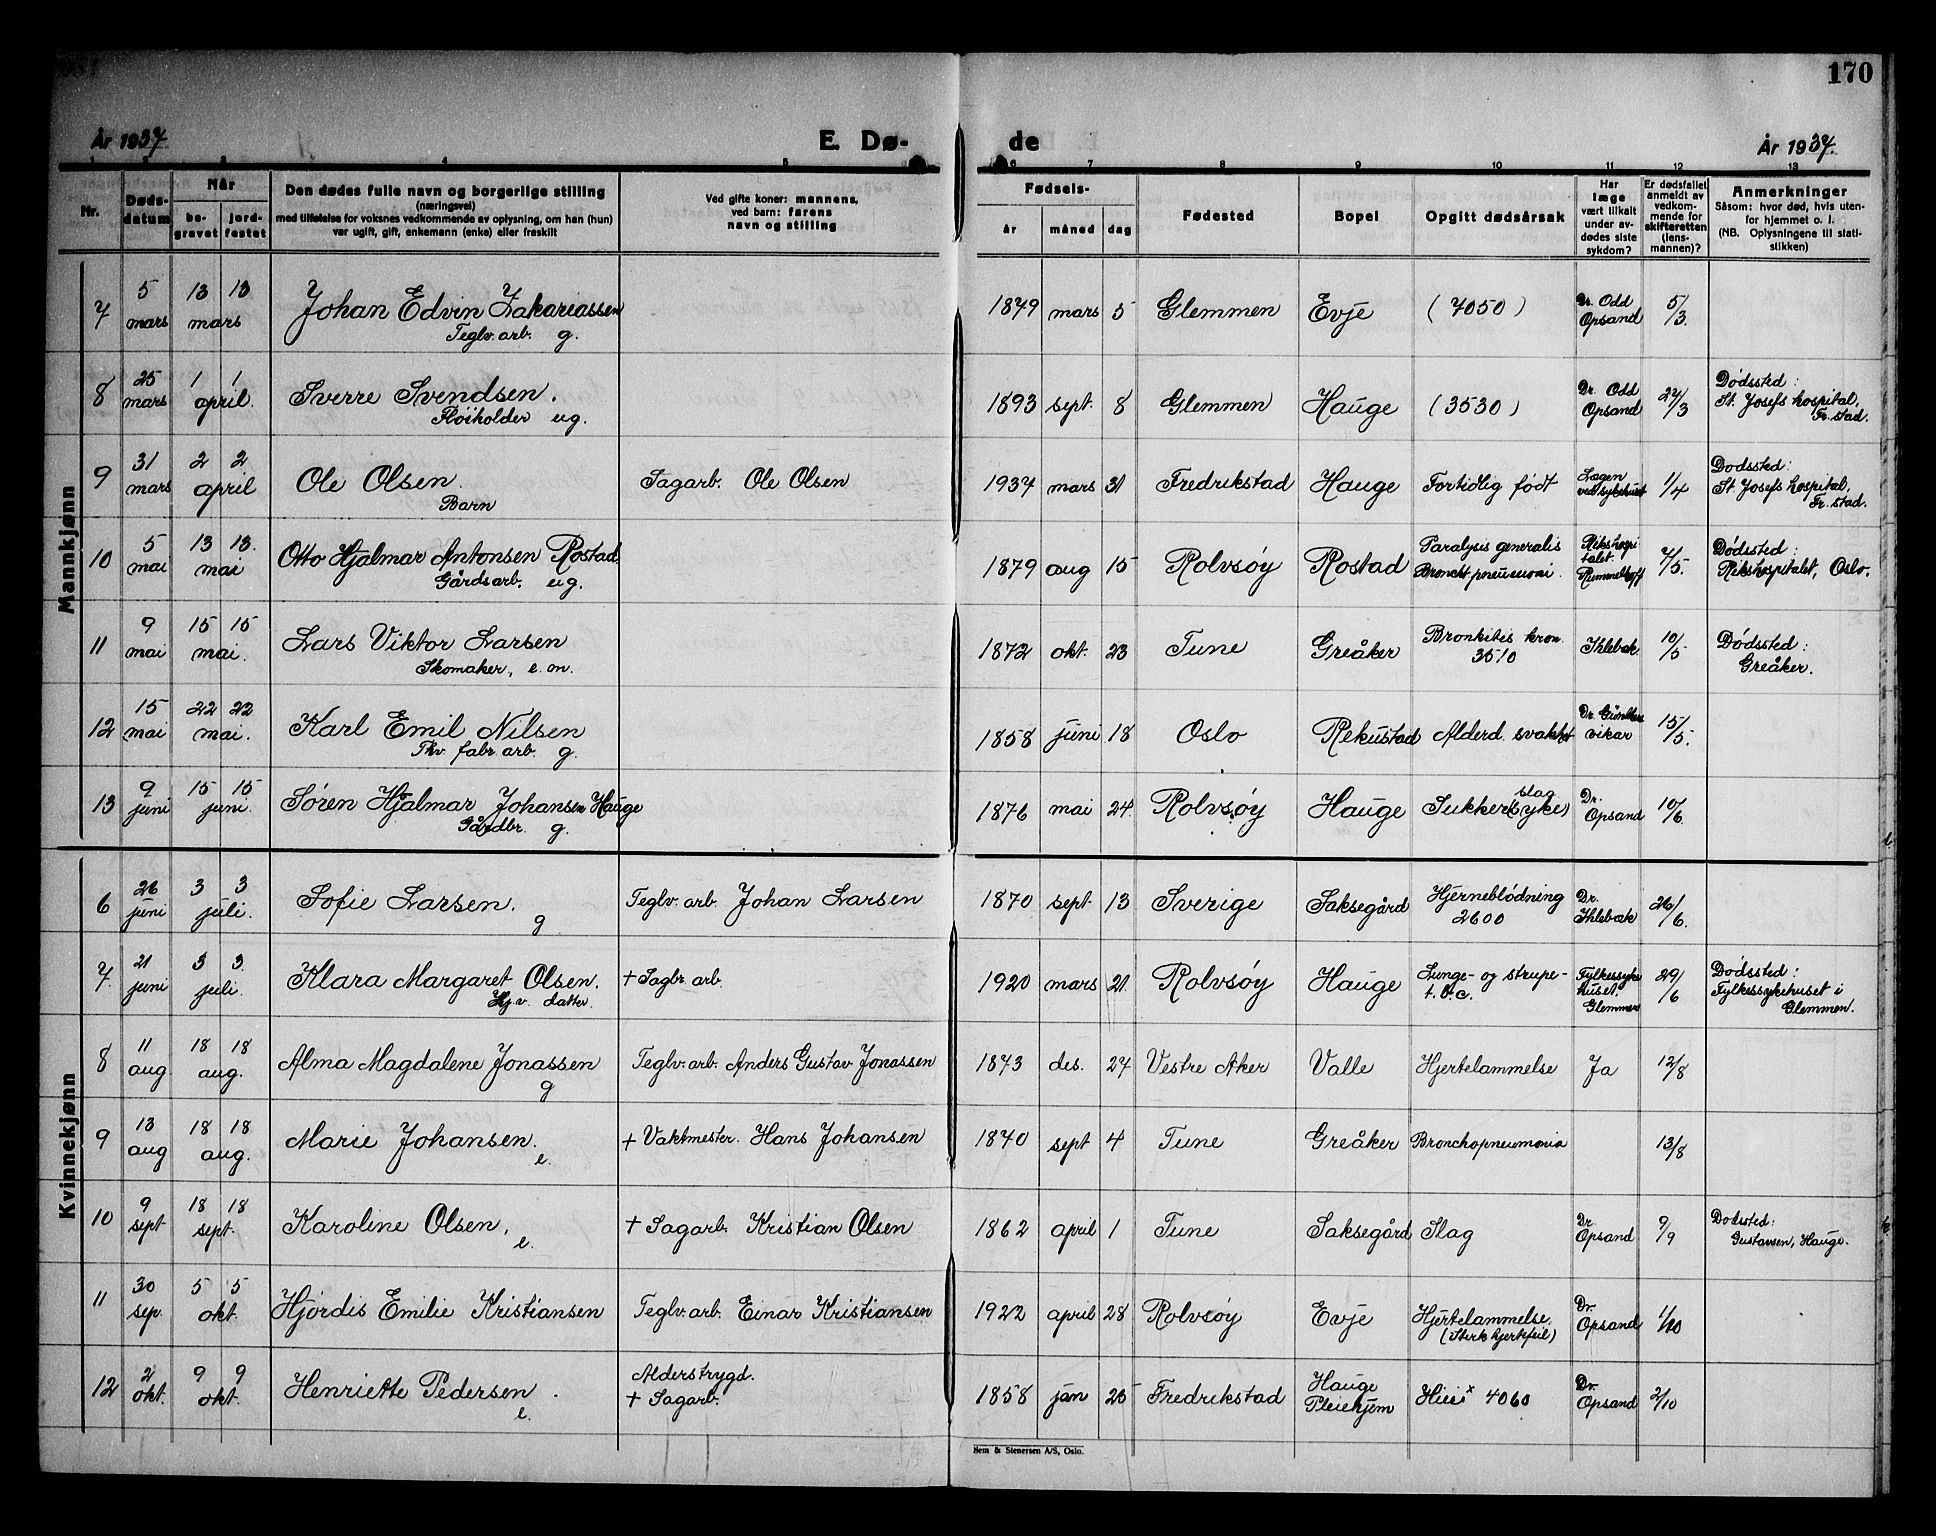 170
År 1937.
E. Dø-
de
År 1937.
1 2 3 4 5 6 7 8 9 10 11 12 13
Nr.
Døds-
datum
Når
be-
gravet
jord-
festet
Den dødes fulle navn og borgerlige stilling
(næringsvei)
med tilføielse for voksnes vedkommende av oplysning, om han (hun)
var ugift, gift, enkemann (enke) eller fraskilt
Ved gifte koner: mannens,
ved barn: farens
navn og stilling
Fødsels-
år måned dag
Fødested
Bopel
Opgitt dødsårsak
Har
læge
vært tilkalt
under av-
dødes siste
sykdom?
Er dødsfallet
anmeldt av
vedkom-
mende for
skifteretten
(lens-
mannen)?
Anmerkninger
Såsom: hvor død, hvis uten-
for hjemmet o. l.
(NB. Oplysningene til stati-
stikken)
Mannkjønn
7 5 mars 13 13 mars Johan Edvin Zakariassen 1879 mars 5 Glemmen Evje (7050) Dr. Odd Opsand 5/3.
Teglv. arb. g.
8 25 mars 1 1 april. Sverre Svendsen. 1893 sept. 8 Glemmen Hauge (3530) Dr. Odd Opsand 27/3 Dødssted: St. Josefs hospital, Fr. stad.
Fløiholder ug.
9 31 mars 2 2 april Ole Olsen. Sagarb. Ole Olsen 1937 mars 31 Fredrikstad Hauge Fortidlig født Lægen ved sykehuset 1/4 Dødssted: St. Josefs hospital, Fr. stad.
Barn
10 5 mai 13 13. mai Otto Hjalmar Antonsen Rostad. 1879 aug 15 Rolvsøy Rostad Paralysis generalis Bronchtpneumoni. Rikshospitalet. 7/5. Dødssted: Rikshospitalet, Oslo.
Gårdsarb. ug.
11 9 mai 15 15 mai. Lars Viktor Larsen 1872 okt. 23 Tune Greåker Bronkites kron. 3510 Ihlebæk 10/5 Dødssted: Greåker.
Skomaker, e. m.
12 15 mai 22 22 mai. Karl Emil Nilsen 1858 juni 18 Oslo Rekustad Alderd. svakhet vikar 15/5.
fabr. arb. g.
13 9 juni 15 15 juni. Søren Hjalmar Johansen Hauge 1876 mai 24. Rolvsøy Hauge Sukkersyke (slag) Dr. Opsand 10/6.
Gårdbr. g.
Kvinnekjønn
6 26 juni 3 3 juli. Sofie Larsen. Teglv. arb. Johan Larsen 1870 sept. 13 Sverige Saksegård Hjerneblødning 2600 Dr. Ihlebæk 26/6.
g
7 21 juni 3 3. juli. Klara Margaret Olsen. + Sagbr. arb. 1920 mars 21 Rolvsøy Hauge Lunge- og strupe- t. b. c. Fylkessykehuset. Glemmen 29/6 Dødssted: Fylkessykehuset i Glemmen.
Hj.v. datter.
8 11 aug. 18 18 aug. Alma Magdalene Jonassen Teglv. arb. Anders Gustav Jonassen 1873 des. 27 Vestre Aker Valle Hjertelammelse Ja 12/8
g
9 13 aug 18 18 aug. Marie Johansen. + Vaktmester. Hans Johansen 1840 sept 4 Tune Greåker Bronchopneumonia 13/8
e.
10 9 sept. 18 18 sept. Karoline Olsen, + Sagarb. Kristian Olsen 1862 april 1 Tune Saksegård Slag Dr. Opsand 9/9 Dødssted: Gustavsen, Hauge.
e.
11 30 sep. 5 5 okt. Hjørdis Emilie Kristiansen Teglv. arb. Einar Kristiansen 1922 april 28 Rolvsøy Evje Hjertelammelse. (Sterk hjertefeil) Dr. Opsand 1/10
12 2 okt. 9 9 okt. Henriette Pedersen. Alderstrygd. + Sagarb. 1858 jan 25 Fredrikstad Hauge Pleiehjem 4060 Dr. Opsand 2/10
e.
Hem & Stenersen A/S, Oslo.